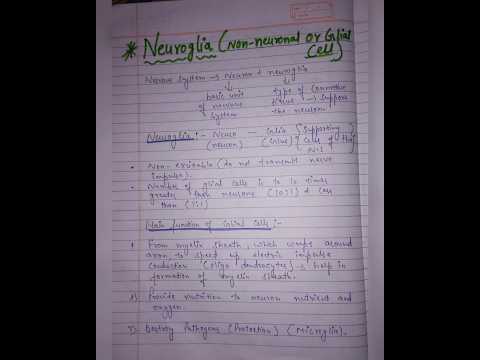 * Neuroglia (Non-neuronal or Glial Cell)
Nervous System → Neuron + neuroglia
basic unit of nervous system
type of connective tissue → support the neuron
Neuroglia :- Neuro — Glia { Supporting
(neuron) (Glue) { cells of the
N.S }
• Non-excitable (do not transmit nerve
impulse).
• Number of glial cells is to 10 times
greater than neurons (10:1) &
than (1:1)
Main function of Glial Cells :-
From myelin sheath, which wraps around
axon to speed up electric impulse
conduction (oligo dendrocytes) → help in
formation of myelin sheath.
Provide nutrition to neuron nutrient and
oxygen.
Destroy Pathogens (Protection) (Microglia).